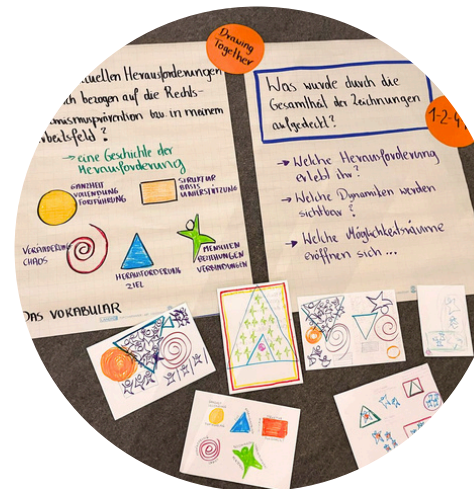 Drawing
Together
Herausforderungen
bezogen auf die Rechts-
bzw. in meinem
?
→ eine Geschichte der
Herausforderung
GANZHEIT
VOLLENDUNG
FORTFÜHRUNG
STRUKTUR
BASIS
UNTERSTÜTZUNG
VERÄNDERUNG
CHAOS
HERAUSFORDERUNG
ZIEL
MENSCHEN
BEZIEHUNGEN
VERBINDUNGEN
DAS VOKABULAR
Was wurde durch die
Gesamtheit der Zeichnungen
aufgedeckt?
1-2-4
→ Welche Herausforderung
erlebt ihr?
→ Welche Dynamiken werden
sichtbar?
→ Welche Möglichkeitsräume
eröffnen sich ...